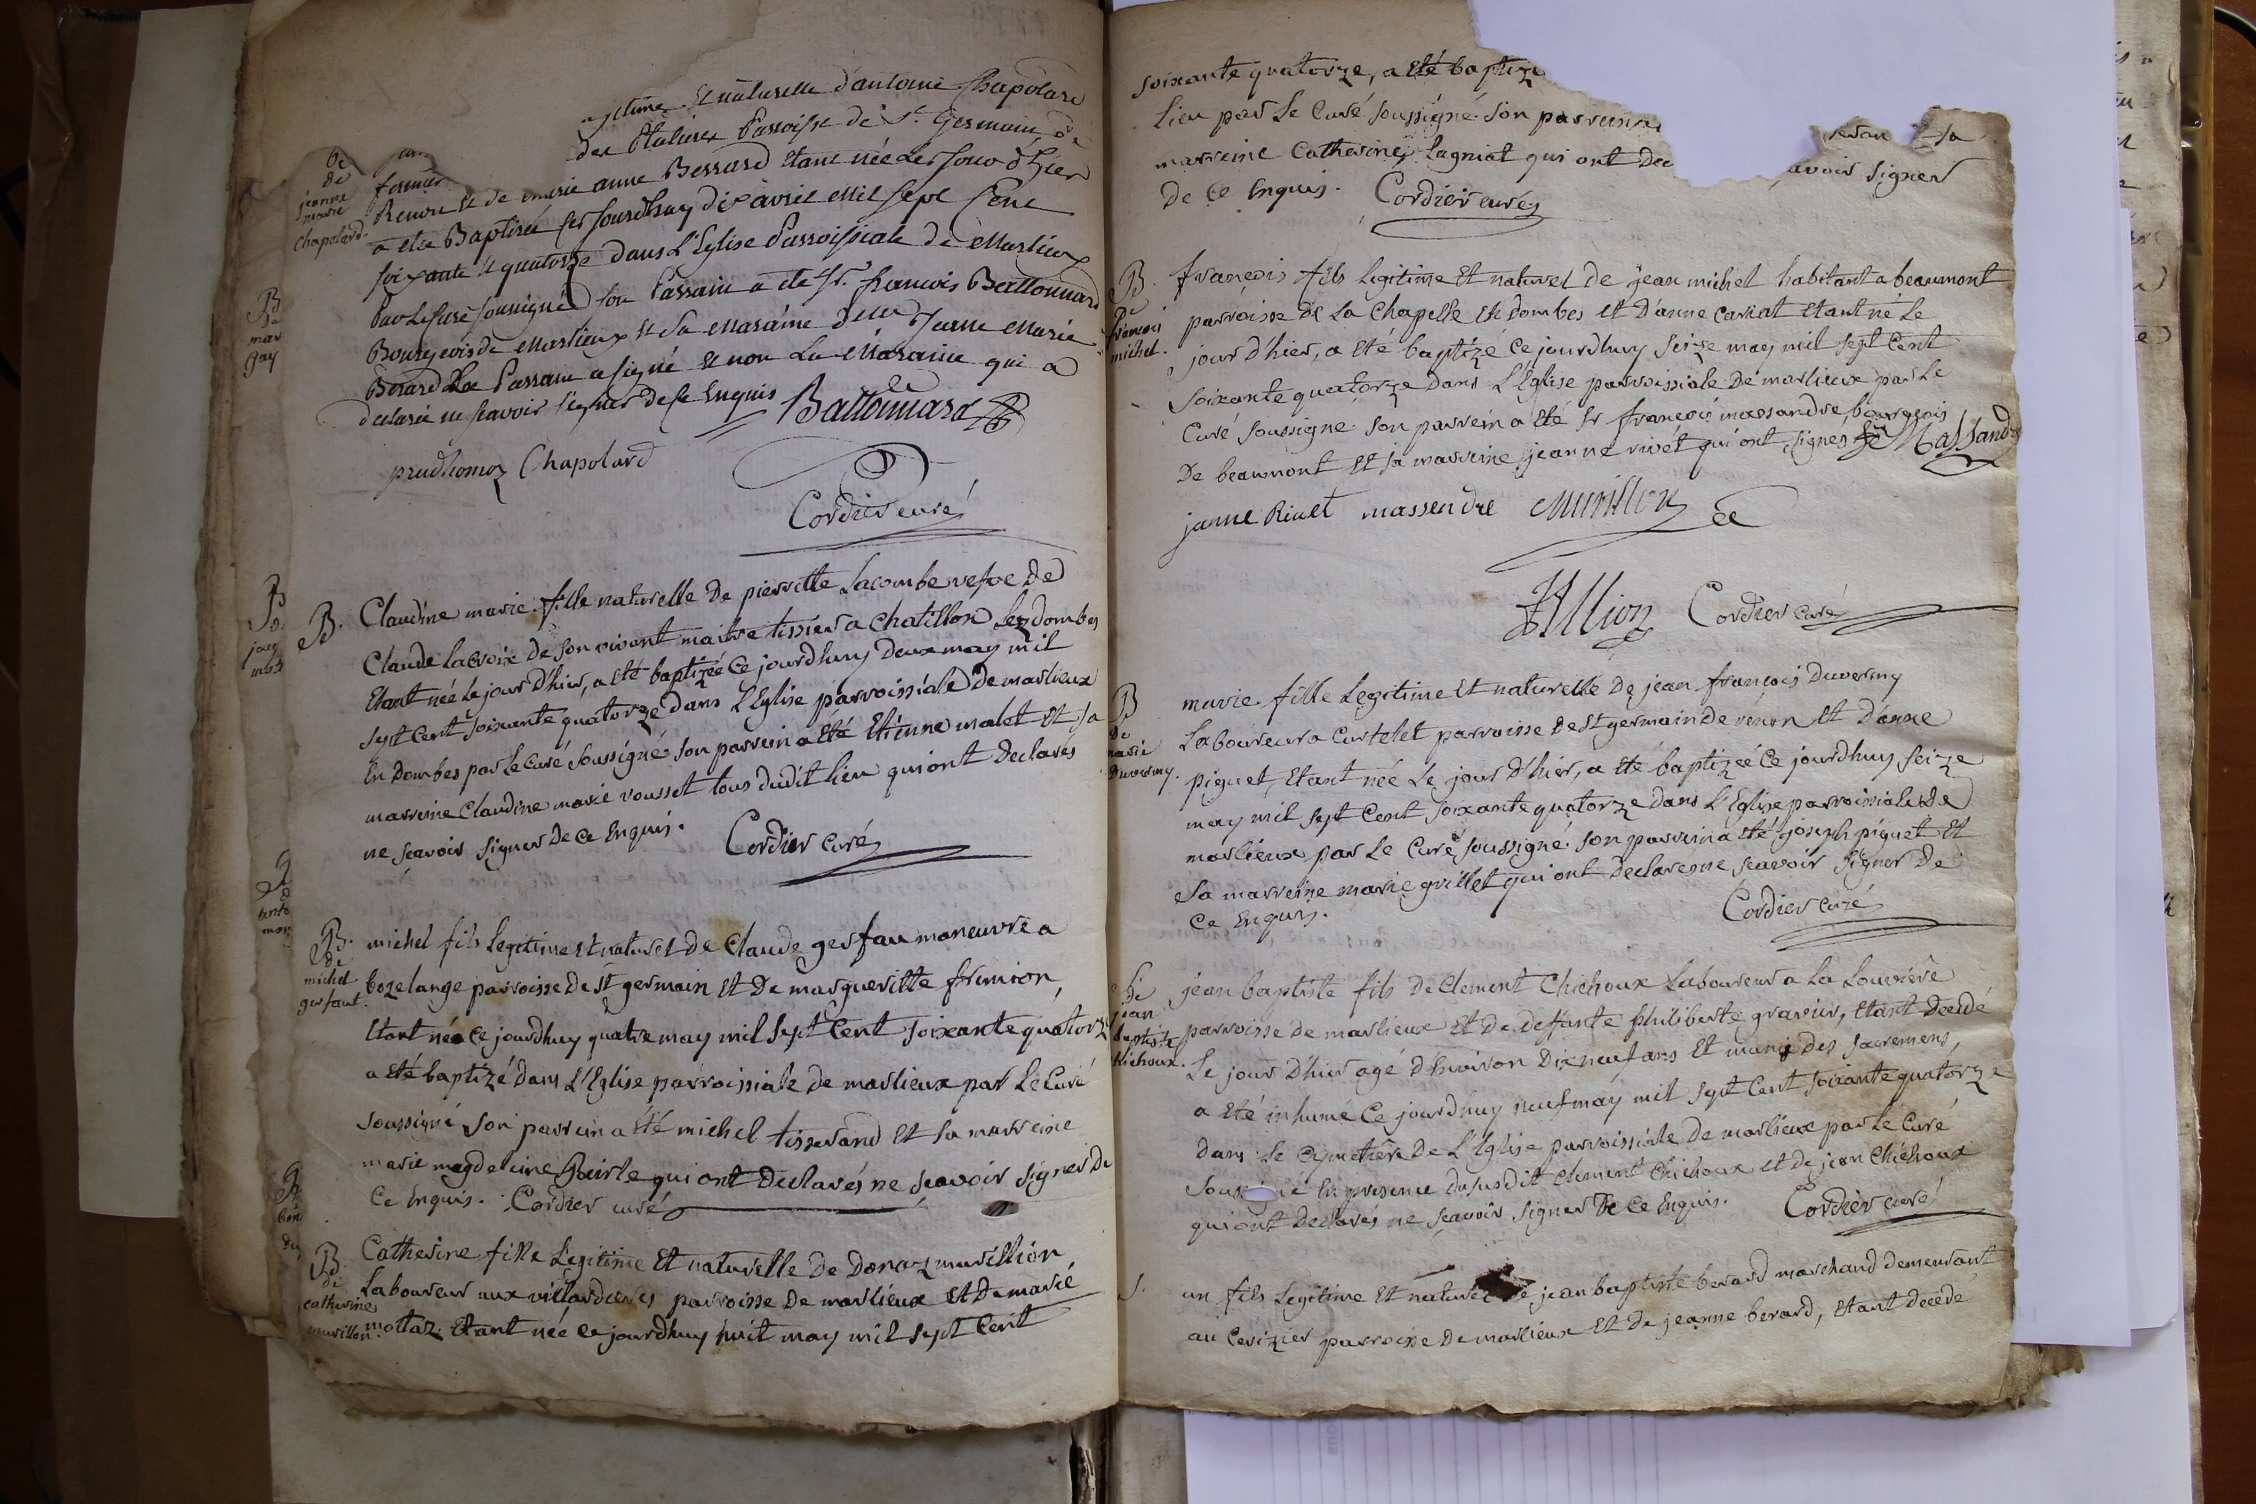 et naturelle d'antoine Chapolard
des Etalieux Parroisse de St Germain de
de
jeanne
marie
Chapolard.
fermier
Renon et de marie anne Berrard etant née Le jour d'hier
a été Baptisée ce jourdhuy dix avril mil sept Cent
soixante et quatorze dans L'Eglise Parroissiale de Marlieux
Par Le Curé soussigné son Parrain a été Sr. francois Battonnard
Bourgeois de Marlieux et sa Maraine Jeanne Marie
Berard Le Parrain a signé et non La Maraine qui a
declarée ne scavoir signer de ce Enquis Battonnard
prudhomoz Chapolard
Cordier curé
B. Claudine marie fille naturelle De pierrette Lacombe vefve De
Claude Lacroix De son vivant maitre tissier a Chatillon Lez dombes
Etant née Le jour D'hier, a été baptizéé Ce jourdhuy Deux may mil
sept Cent soixante quatorze Dans L'Eglise parroissiale De marlieux
En Dombes par Le Curé soussigné son parrein a été Etienne malet Et sa
marreine Claudine marie vousset tous dudit Lieu qui ont Declarés
ne scavoir signer De Ce Enquis. Cordier Curé
B.
de
michel
gerfaut.
michel fils Legitime et naturel De Claude gerfau maneuvre a
bozelange parroisse De St germain Et De margueritte frimion,
Etant né Ce jourdhuy quatre may mil sept Cent soixante quatorze
a été baptizé Dans L'Eglise parroissiale De marlieux par Le Curé
soussigné son parrein a été michel tisserand Et sa marreine
marie magdeleine qui ont Declarés ne scavoir signer De
Ce Enquis. Cordier curé
B.
de
catherine
murillon.
Catherine fille Legitime Et naturelle De Donaz murillion
Laboureur aux villardieres parroisse De marlieux Et De marie
mottaz Etant née ce jourdhuy huit may mil sept Cent
soixante quatorze, a été baptize
Lieu par Le Curé soussigné son parrein
marreine Catherine Lagniat qui ont Dec avoir signer
De Ce Enquis. Cordier curé
B
De
francois
michel.
francois fils Legitime Et naturel de jean michel habitant a beaumont
parroisse De La Chapelle En Dombes et D'anne carriat Etant né Le
jour d'hier, a été baptizé Ce jourdhuy seize may mil sept Cent
soixante quatorze Dans L'Eglise parroissiale De marlieux par Le
Curé soussigné son parrein a été Sr francois massandre, bourgeois
De beaumont Et sa marreine jeanne rivet qui ont signés Massandre
janne Rivet massendre Murillon
Cordier Curé
B
de
marie
Duverny.
marie fille Legitime Et naturelle De jean françois Duverny
Laboureur a Curtelet parroisse De St germain de rénon Et D'anne
piguet, Etant née Le jour D'hier, a été baptizéé Ce jourdhuy seize
may mil sept Cent soixante quatorze Dans L'Eglise parroissiale De
marlieux par Le Curé soussigné son parrein a été joseph piguet Et
sa marreine marie guillet qui ont Declares ne scavoir signer De
Ce Enquis. Cordier curé
de
jean
baptiste
Chichoux.
jean baptiste fils De Clement Chichoux Laboureur a La Louviere
parroisse de marlieux Et De Deffante philiberte gravier, Etant Decedé
Le jour D'hier agé d'Environ Dixneuf ans Et munis Des sacremens,
a été inhumé Ce jourdhuy neuf may mil sept Cent soixante quatorze
Dans Le Cymetiere De L'Eglise parroissiale De marlieux par Le Curé
En presence Du susdit Clement Chichoux et de jean Chichoux
qui ont Declarés ne scavoir signer De Ce Enquis. Cordier curé
S. un fils Legitime Et naturel De jean baptiste berard marchand demeurant
au Cerizier parroisse De marlieux Et De jeanne berard, Etant Decedé